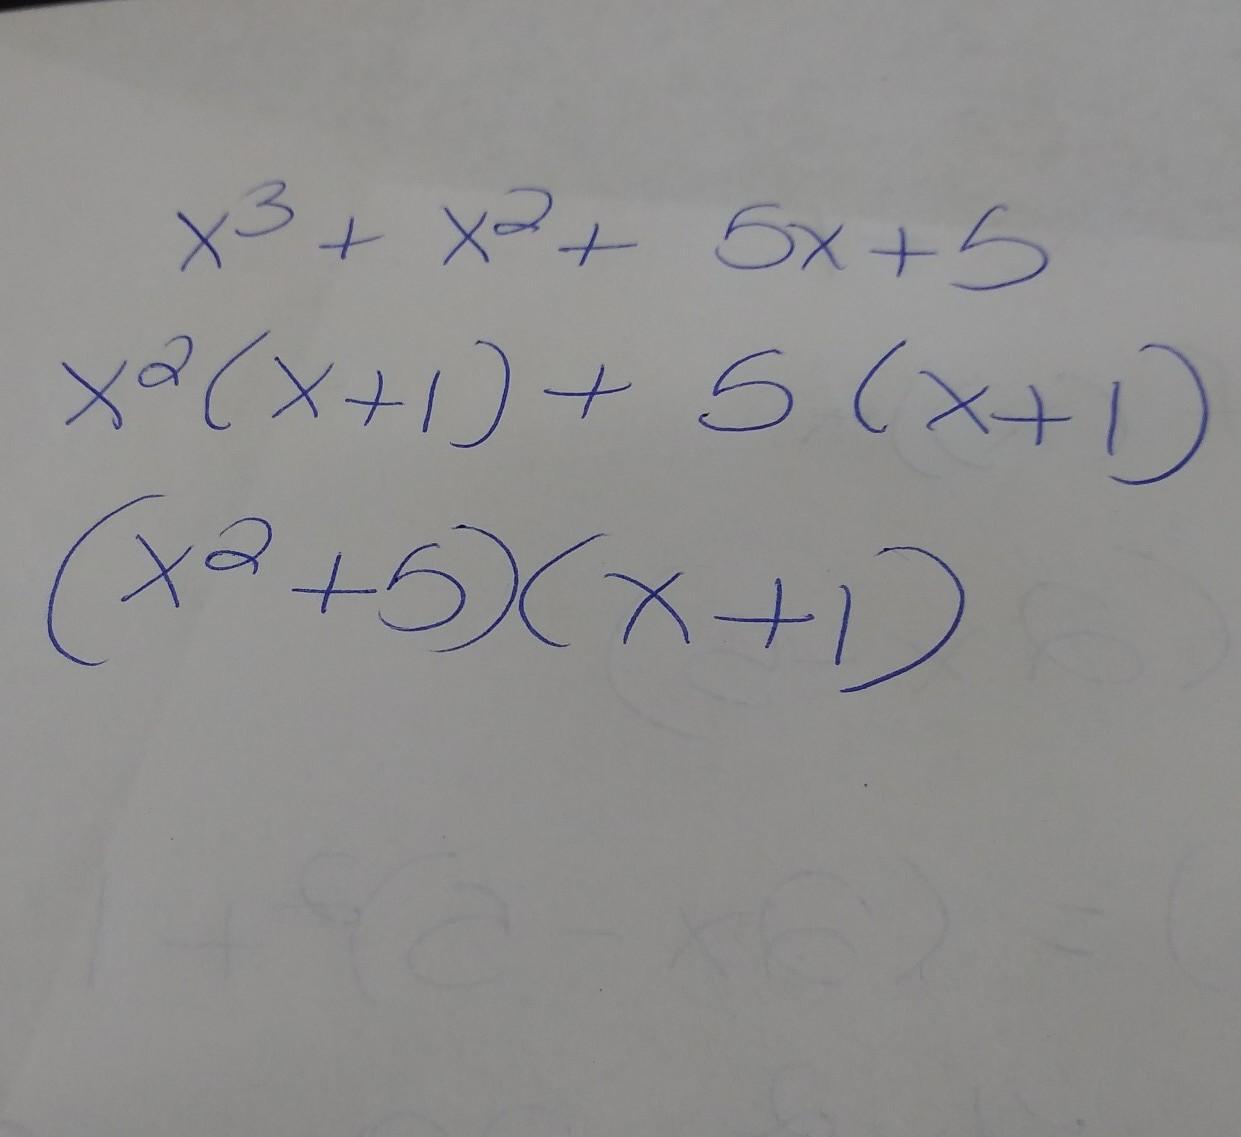 x³ + x² + 5x + 5
x²(x+1) + 5(x+1)
(x²+5)(x+1)